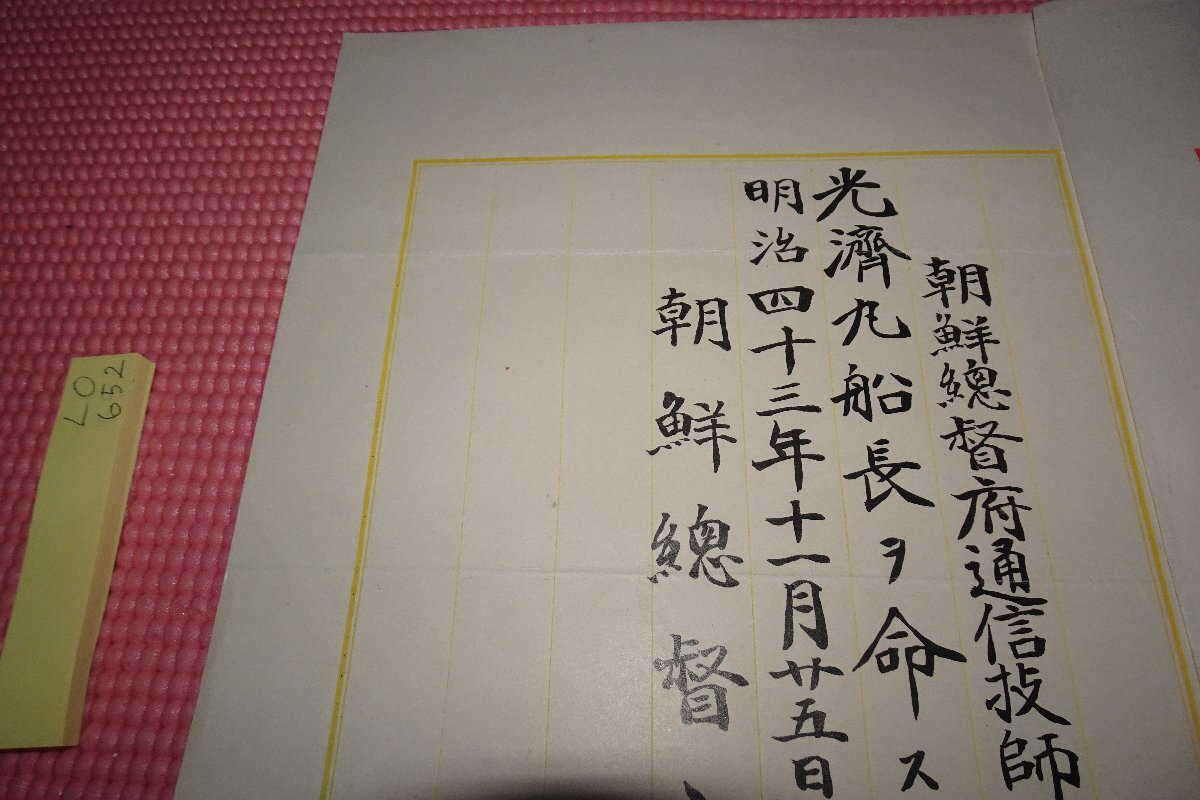 朝鮮總督府通信技師
光濟丸船長ヲ命ス
明治四十三年十一月廿五日
朝鮮總督
LO
652